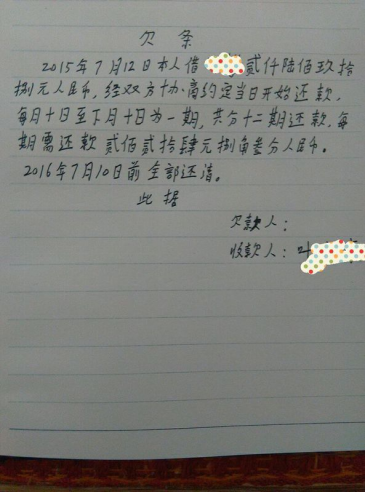 欠条
2015年7月12日本人借 贰仟陆佰玖拾
捌元人民币，经双方协商约定当日开始还款，
每月十日至下月十日为一期，共分十二期还款，每
期需还款贰佰贰拾肆元捌角叁分人民币。
2016年7月10日前全部还清。
此据
欠款人：
收款人：叶